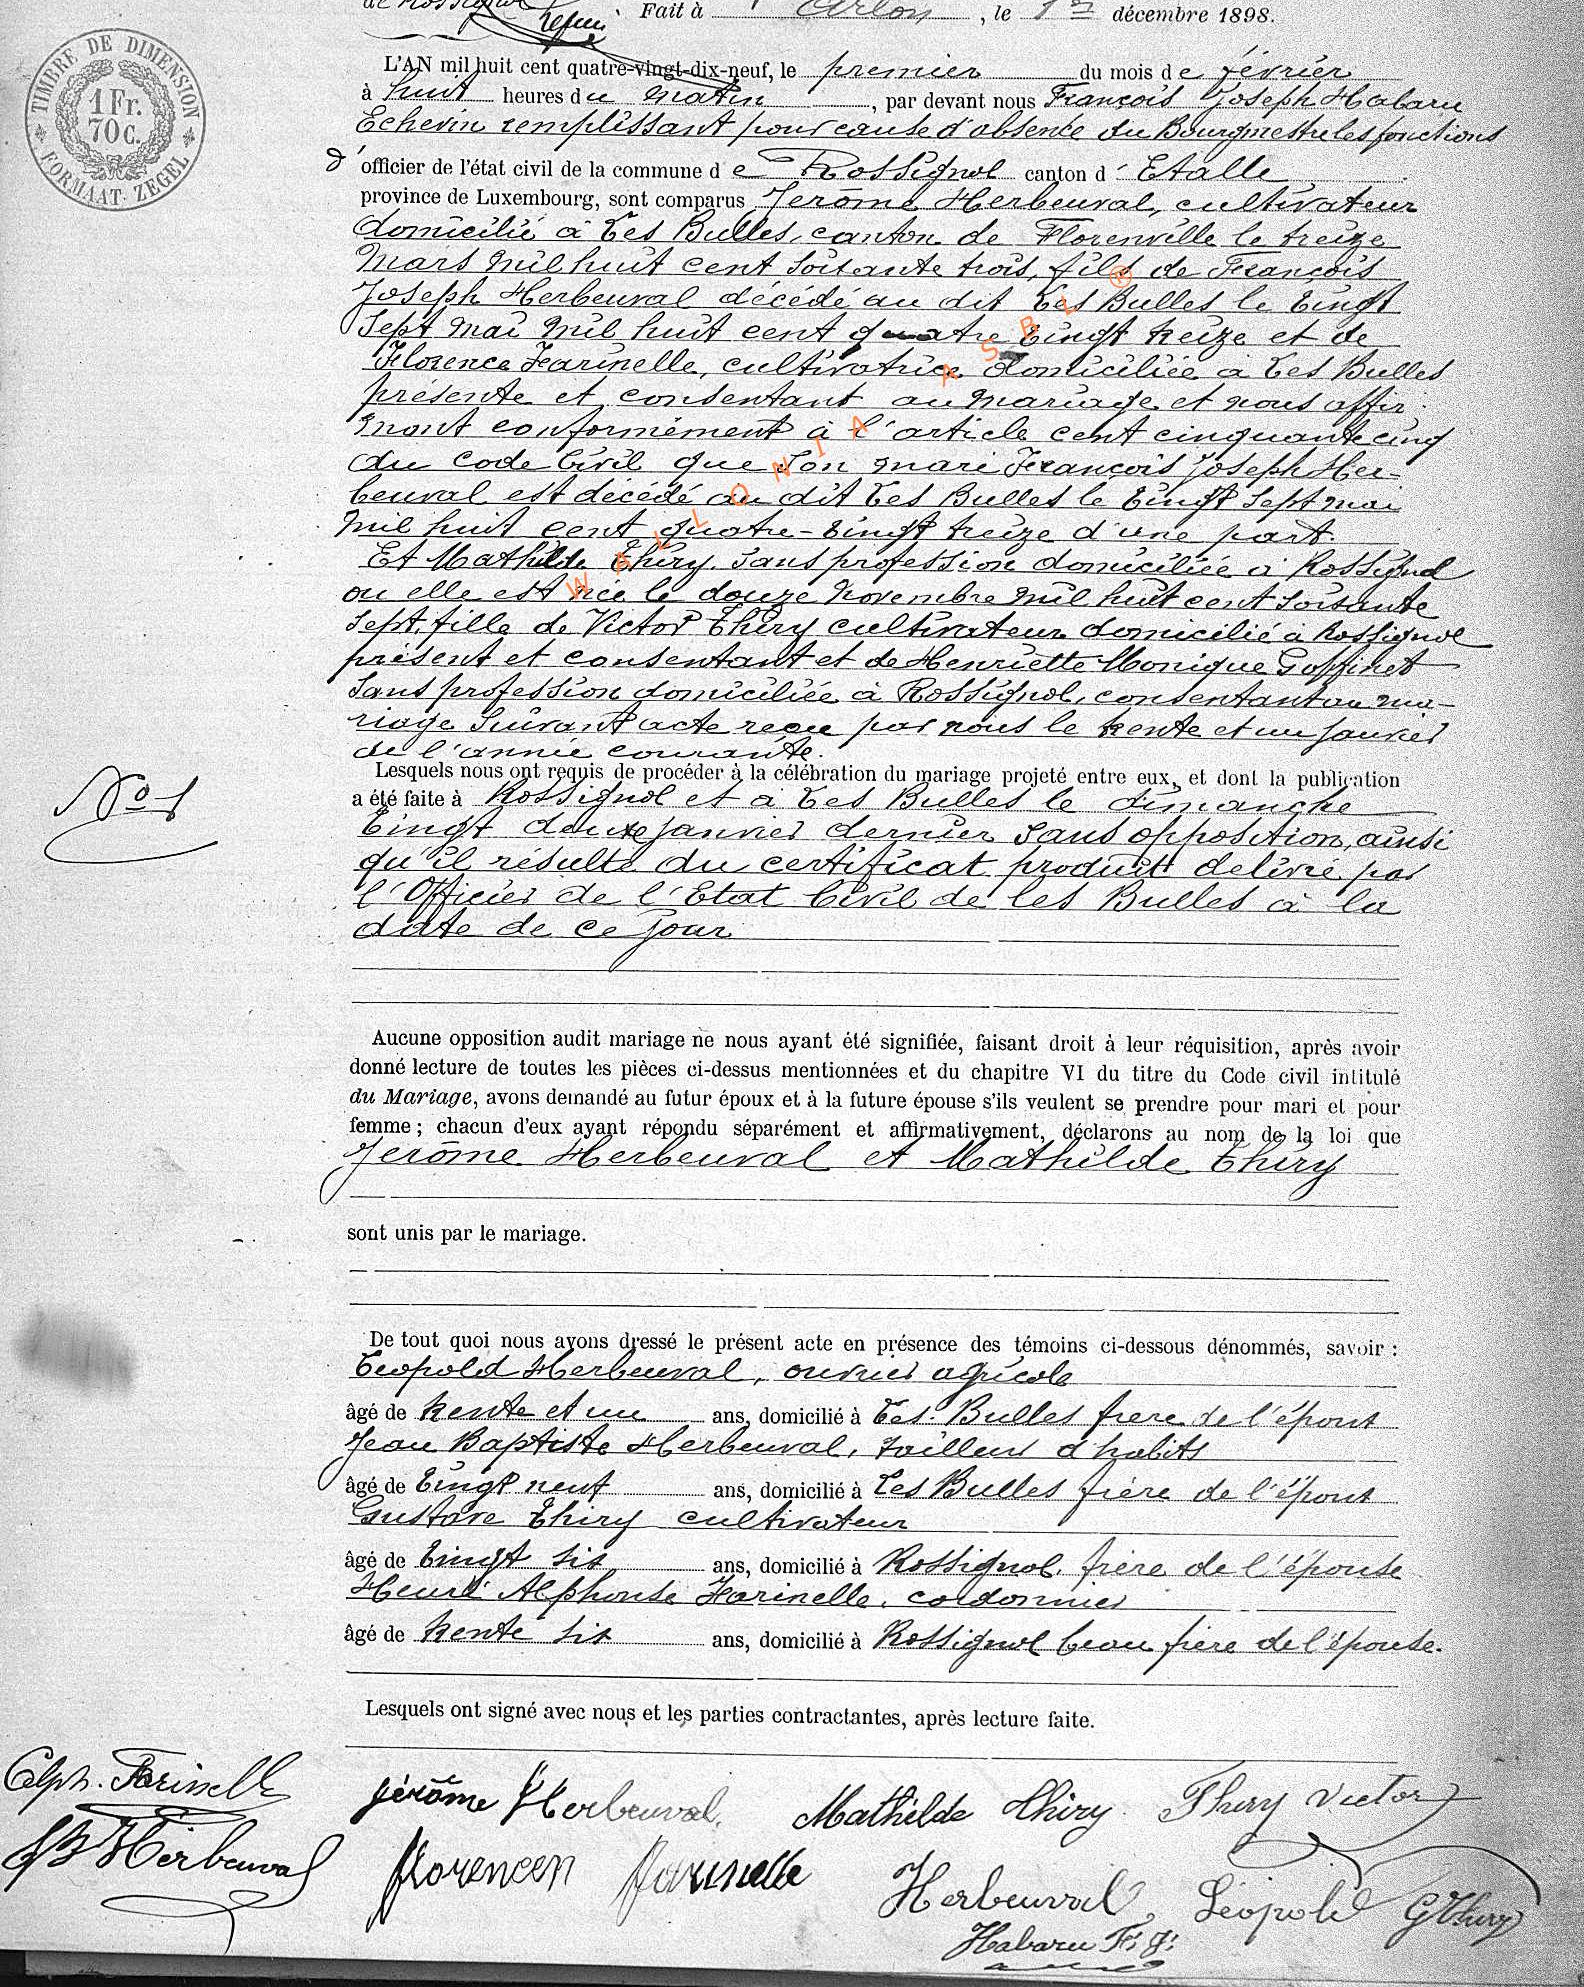 Fait à Arlon, le 1er décembre 1898.
TIMBRE DE DIMENSION
1 Fr.
70c.
FORMAAT ZEGEL
L'AN mil huit cent quatre-vingt-dix-neuf, le premier du mois de février
à huit heures du matin, par devant nous François Joseph Habaru
Echevin remplissant pour cause d'absence du Bourgmestre les fonctions
d'officier de l'état civil de la commune de Rossignol canton d'Etalle
province de Luxembourg, sont comparus Jerôme Herbeuval, cultivateur
domicilié à Les Bulles, canton de Florenville le treize
Mars mil huit cent soixante trois, fils de François
Joseph Herbeuval décédé au dit Les Bulles le vingt
sept mai mil huit cent quatre vingt treize et de
Florence Farinelle, cultivatrice domiciliée à Les Bulles
présente et consentant au mariage et nous affir
mant conformément à l'article cent cinquante cinq
du code Civil que son mari François Joseph Her-
beuval est décédé au dit Les Bulles le vingt sept mai
mil huit cent quatre-vingt treize d'une part.
Et Mathilde Thiry, sans profession domiciliée à Rossignol
ou elle est née le douze Novembre mil huit cent soixante
sept, fille de Victor Thiry cultivateur domicilié à Rossignol
présent et consentant et de Henriette Monique Goffinet
sans profession domiciliée à Rossignol, consentant au ma-
riage suivant acte reçu par nous le trente et un janvier
de l'année courante.
Lesquels nous ont requis de procéder à la célébration du mariage projeté entre eux, et dont la publication
a été faite à Rossignol et à Les Bulles le dimanche
vingt deux janvier dernier sans opposition, ainsi
qu'il résulte du certificat produit délivré par
l'Officier de l'Etat Civil de Les Bulles à la
date de ce jour
No 1
Aucune opposition audit mariage ne nous ayant été signifiée, faisant droit à leur réquisition, après avoir
donné lecture de toutes les pièces ci-dessus mentionnées et du chapitre VI du titre du Code civil intitulé
du Mariage, avons demandé au futur époux et à la future épouse s'ils veulent se prendre pour mari et pour
femme ; chacun d'eux ayant répondu séparément et affirmativement, déclarons au nom de la loi que
Jerôme Herbeuval et Mathilde Thiry
sont unis par le mariage.
De tout quoi nous avons dressé le présent acte en présence des témoins ci-dessous dénommés, savoir :
Léopold Herbeuval, ouvrier agricole
âgé de trente et un ans, domicilié à Les Bulles frère de l'époux
Jean Baptiste Herbeuval, tailleur d'habits
âgé de vingt neuf ans, domicilié à Les Bulles frère de l'époux
Gustave Thiry cultivateur
âgé de vingt six ans, domicilié à Rossignol, frère de l'épouse
Henri Alphonse Farinelle, cordonnier
âgé de trente six ans, domicilié à Rossignol beau frère de l'épouse.
Lesquels ont signé avec nous et les parties contractantes, après lecture faite.
Alph. Farinelle
Jérôme Herbeuval. Mathilde Thiry Thiry Victor
JB Herbeuval
Florencen Farinelle
Herbeuval Léopold GThiry
Habaru F. J.
WALLONIA ASBL ®